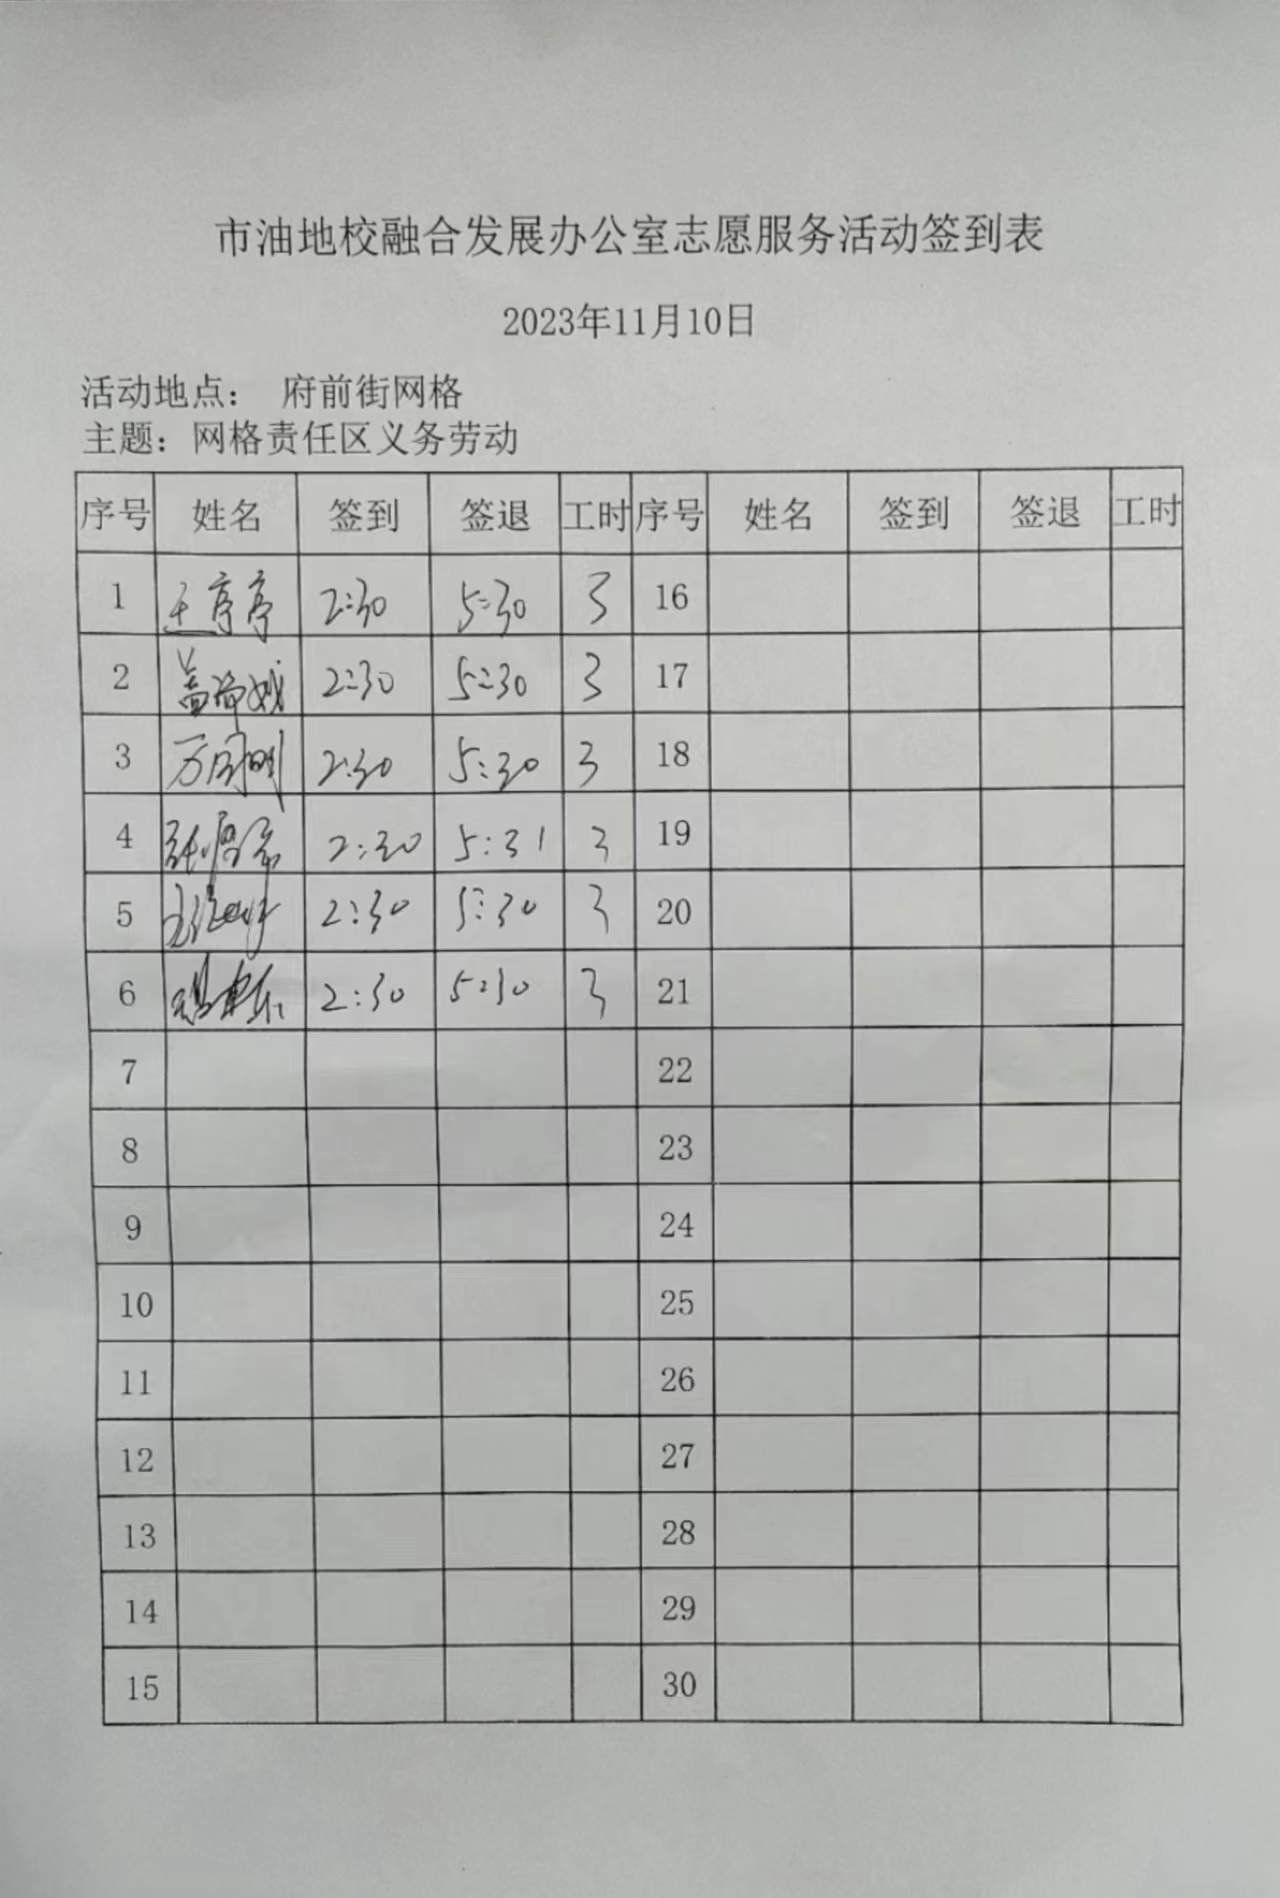 市油地校融合发展办公室志愿服务活动签到表
2023年11月10日
活动地点： 府前街网格
主题：网格责任区义务劳动
序号 姓名 签到 签退 工时 序号 姓名 签到 签退 工时
1 王亭亭 2:30 5:30 3 16
2 2:30 5:30 3 17
3 2:30 5:30 3 18
4 2:30 5:31 3 19
5 2:30 5:30 3 20
6 2:30 5:30 3 21
7 22
8 23
9 24
10 25
11 26
12 27
13 28
14 29
15 30